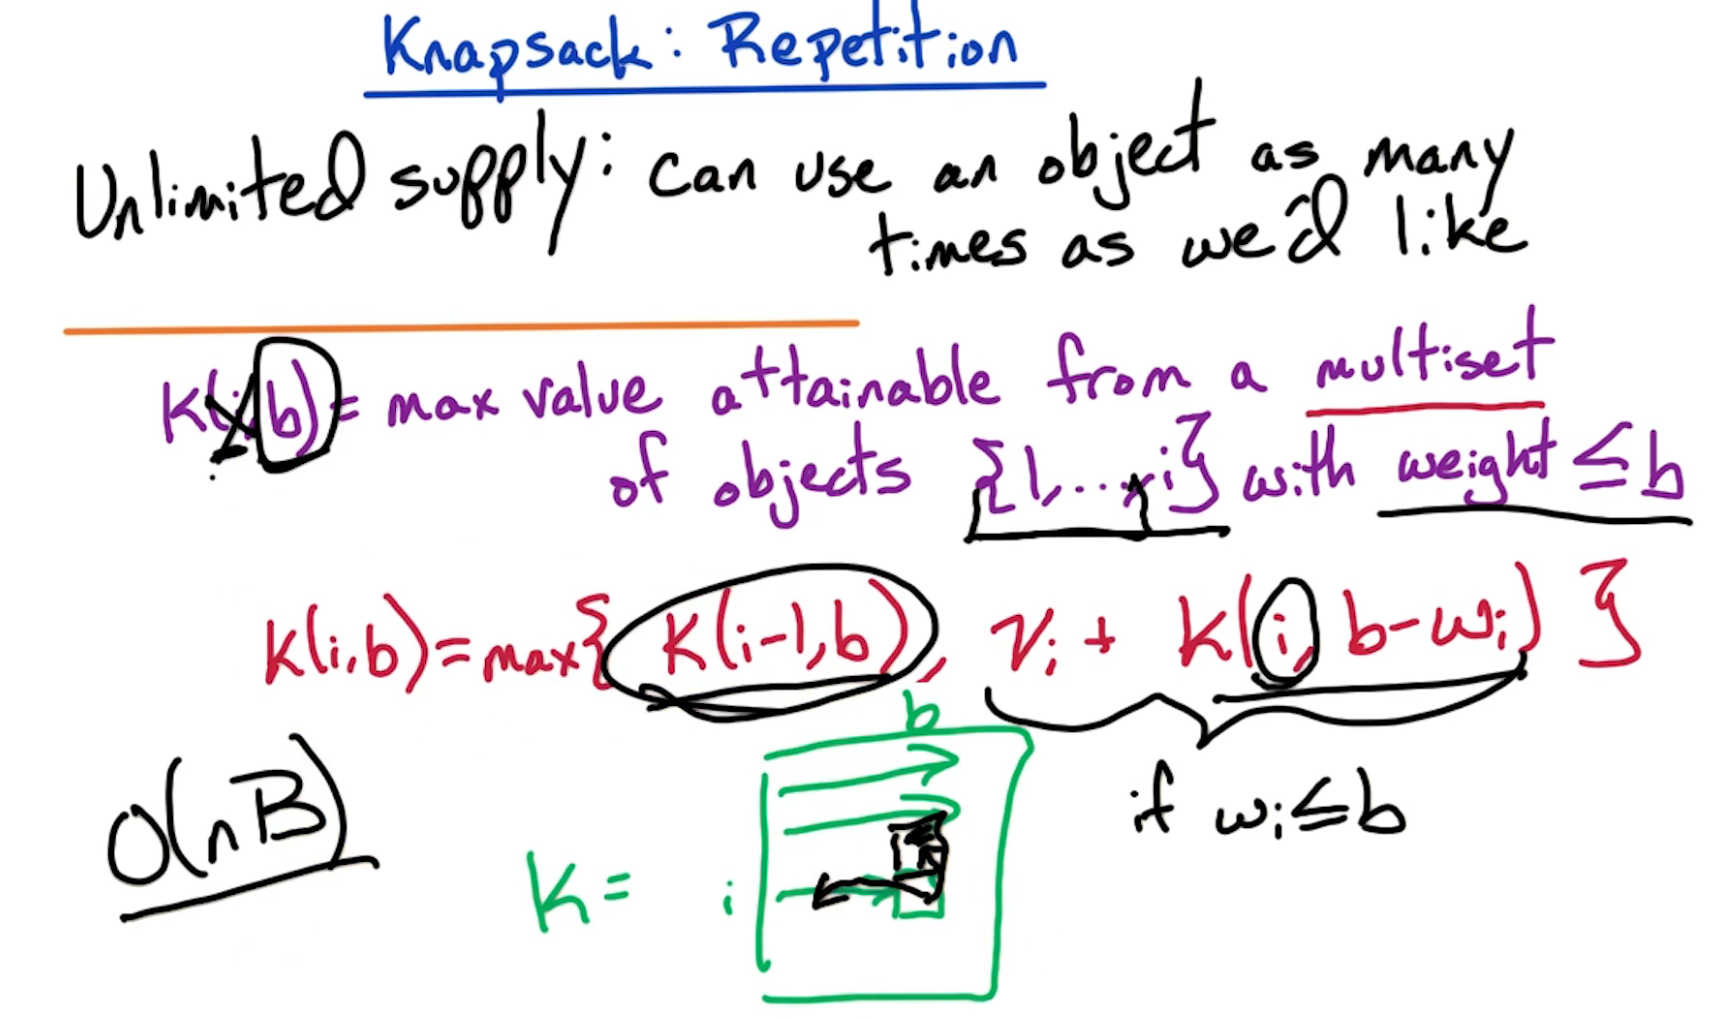 Knapsack: Repetition
Unlimited supply: can use an object as many
times as we'd like
K(i,b) = max value attainable from a multiset
of objects {1,...,i} with weight ≤ b
K(i,b) = max{ K(i-1,b), vᵢ + K(i, b-wᵢ) }
if wᵢ ≤ b
O(nB)
b
K =
i